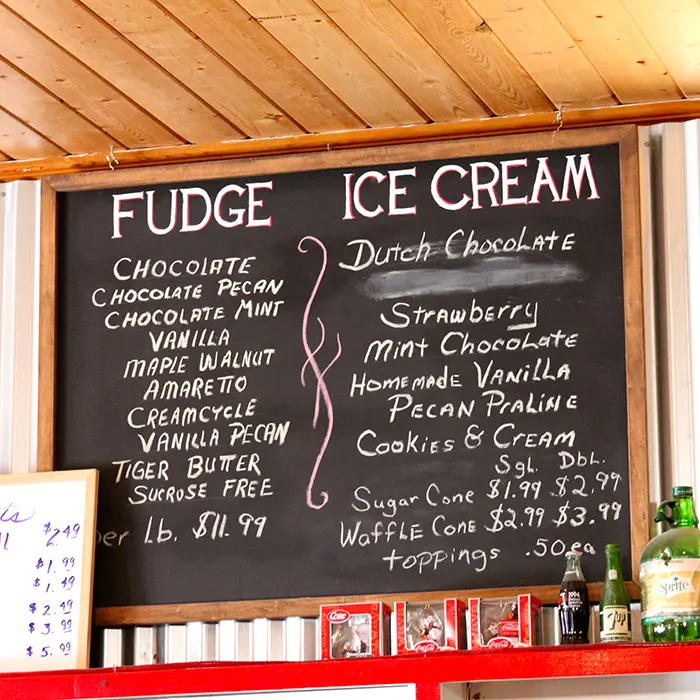 FUDGE
CHOCOLATE
CHOCOLATE PECAN
CHOCOLATE MINT
VANILLA
MAPLE WALNUT
AMARETTO
CREAMCYCLE
VANILLA PECAN
TIGER BUTTER
SUCROSE FREE
per lb. $11.99
ICE CREAM
Dutch Chocolate
Strawberry
Mint Chocolate
Homemade Vanilla
Pecan Praline
Cookies & Cream
Sgl. Dbl.
Sugar Cone $1.99 $2.99
Waffle Cone $2.99 $3.99
toppings .50 ea
$2.49
$1.99
$1.49
$2.49
$3.99
$5.99
7up
Sprite